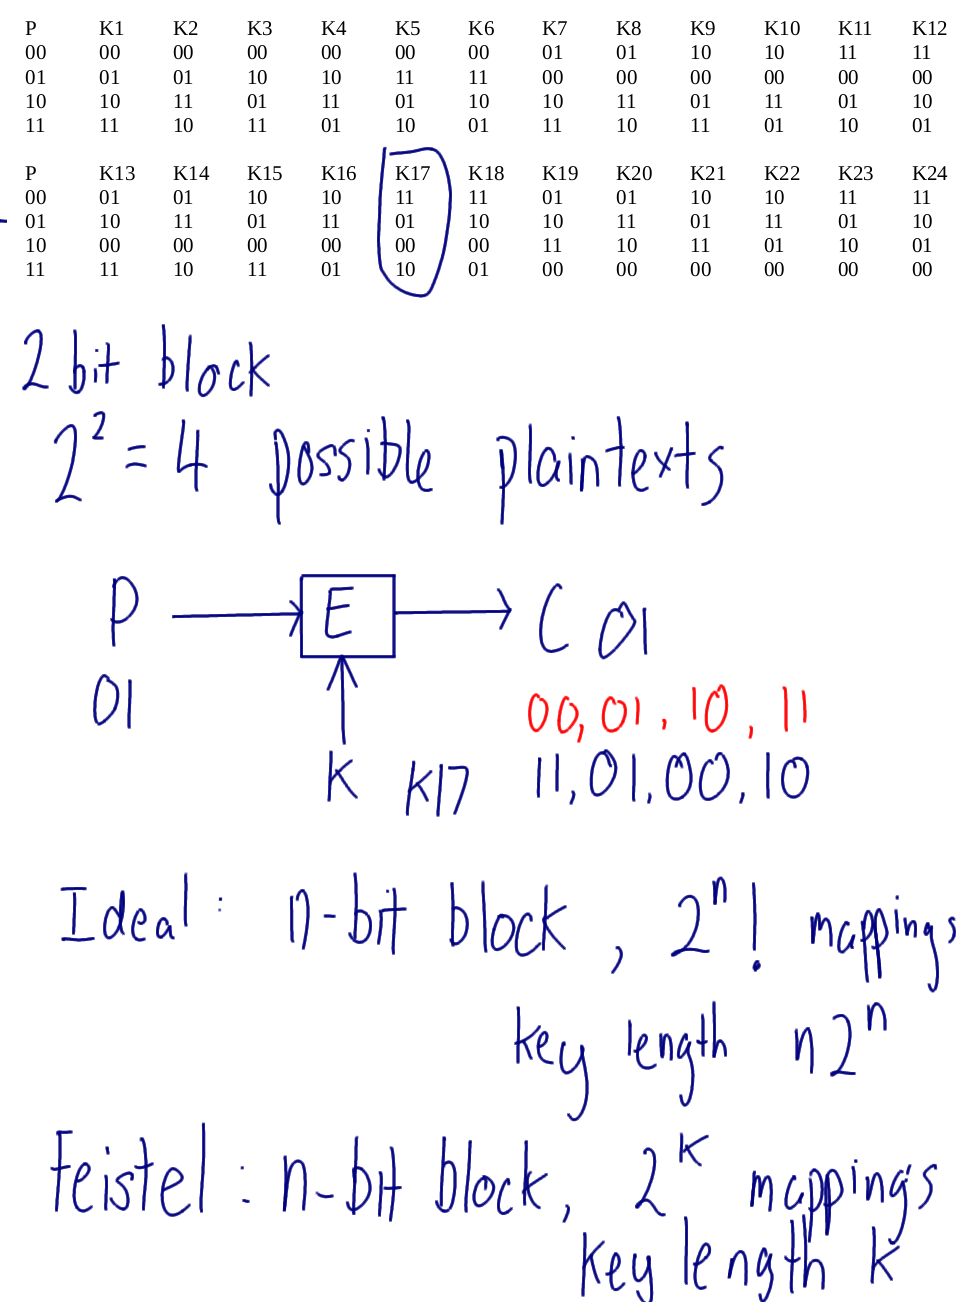 P K1 K2 K3 K4 K5 K6 K7 K8 K9 K10 K11 K12
00 00 00 00 00 00 00 01 01 10 10 11 11
01 01 01 10 10 11 11 00 00 00 00 00 00
10 10 11 01 11 01 10 10 11 01 11 01 10
11 11 10 11 01 10 01 11 10 11 01 10 01
P K13 K14 K15 K16 K17 K18 K19 K20 K21 K22 K23 K24
00 01 01 10 10 11 11 01 01 10 10 11 11
01 10 11 01 11 01 10 10 11 01 11 01 10
10 00 00 00 00 00 00 11 10 11 01 10 01
11 11 10 11 01 10 01 00 00 00 00 00 00
2 bit block
2² = 4 possible plaintexts
P E C 01
01 00, 01, 10, 11
K K17 11, 01, 00, 10
Ideal: n-bit block, 2ⁿ! mappings
key length n2ⁿ
Feistel: n-bit block, 2ᴷ mappings
key length k